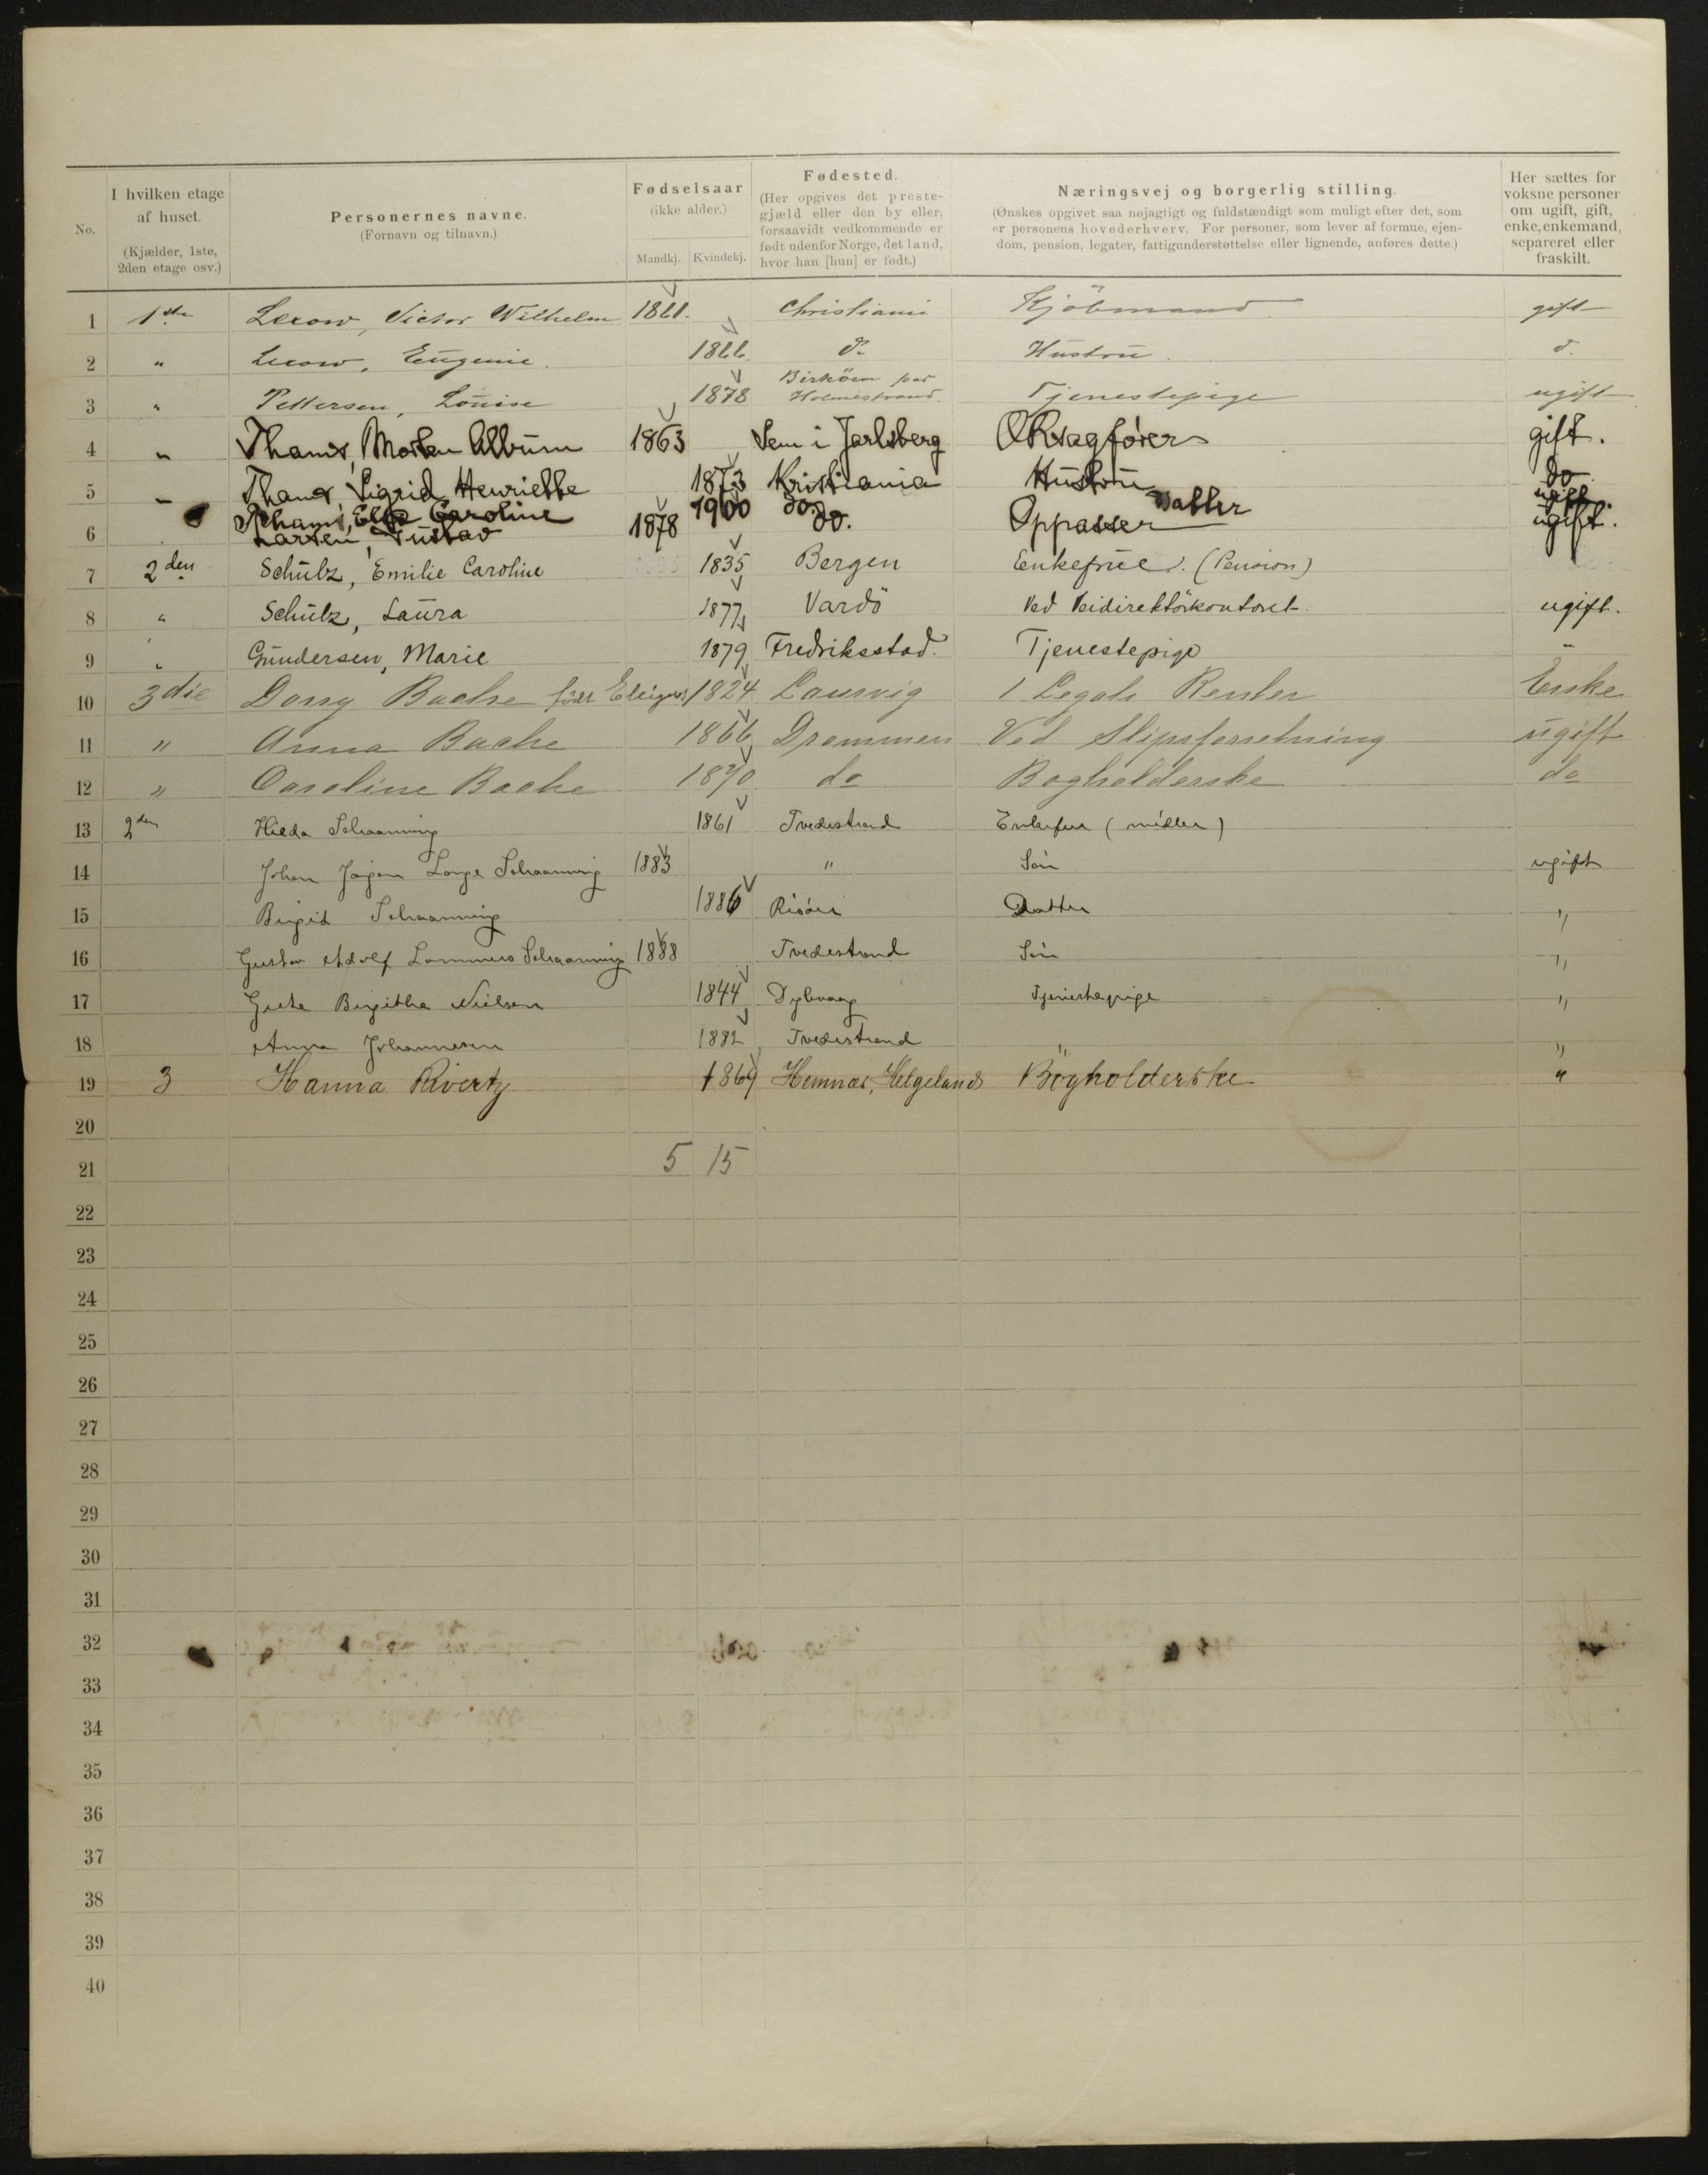 No.
I hvilken etage af huset. (Kjælder, 1ste, 2den etage osv.)
Personernes navne. (Fornavn og tilnavn.)
Fødselsaar (ikke alder.) Mandkj. Kvindekj.
Fødested. (Her opgives det prestegjæld eller den by eller, forsaavidt vedkommende er født udenfor Norge, det land, hvor han [hun] er født.)
Næringsvej og borgerlig stilling. (Ønskes opgivet saa nøjagtigt og fuldstændigt som muligt efter det, som er personens hovederhverv. For personer, som lever af formue, ejendom, pension, legater, fattigunderstøttelse eller lignende, anføres dette.)
Her sættes for voksne personer om ugift, gift, enke, enkemand, separeret eller fraskilt.
1 1ste Lexow, Victor Wilhelm Christiania Kjöbmand gift
2 " Lexow, Eugenie. 1866 do Hustru d.
3 " Pettersen, Louise 1878 Holmestrand. Tjenestepige ugift
4 " Morten 1863 Sem i Jarlsberg ORsagfører gift.
5 " Sigrid Henriette 1873 Kristiania Hustru do
Caroline 1900 do. Datter ugift
6 Larsen, Gustav 1878 do. Oppasser ugift.
7 2den Schülz, Emilie Caroline 1835 Bergen Enkefrue. (Pension)
8 " Schülz, Laura 1877 Vardö Ved Veidirektörkontoret ugift.
9 " Gundersen, Marie 1879 Fredriksstad. Tjenestepige "
10 3die Bache født 1824 Laurvig Legats Renter Enke
11 " Anna Bache 1866 Drammen Ved Slipsforretning ugift
12 " Caroline Bache 1870 do Bogholderske do
13 2den Hilda Schaanning 1861 Tvedestrand Enkefru (midler)
14 Johan Jørgen Lange Schaanning 1883 " Søn ugift
15 Birgit Schaanning 1886 Risøer Datter "
16 Gustav Adolf Lammers Schaanning 1888 Tvedestrand Søn "
17 Birgitha Nielsen 1844 Dybvaag Tjenestepige "
18 Anna Johannesen 1882 Tvedestrand " "
19 3 Hanna Rivertz 1869 Hemnæs, Helgeland Bogholderske "
20
21 5 15
22
23
24
25
26
27
28
29
30
31
32
33
34
35
36
37
38
39
40